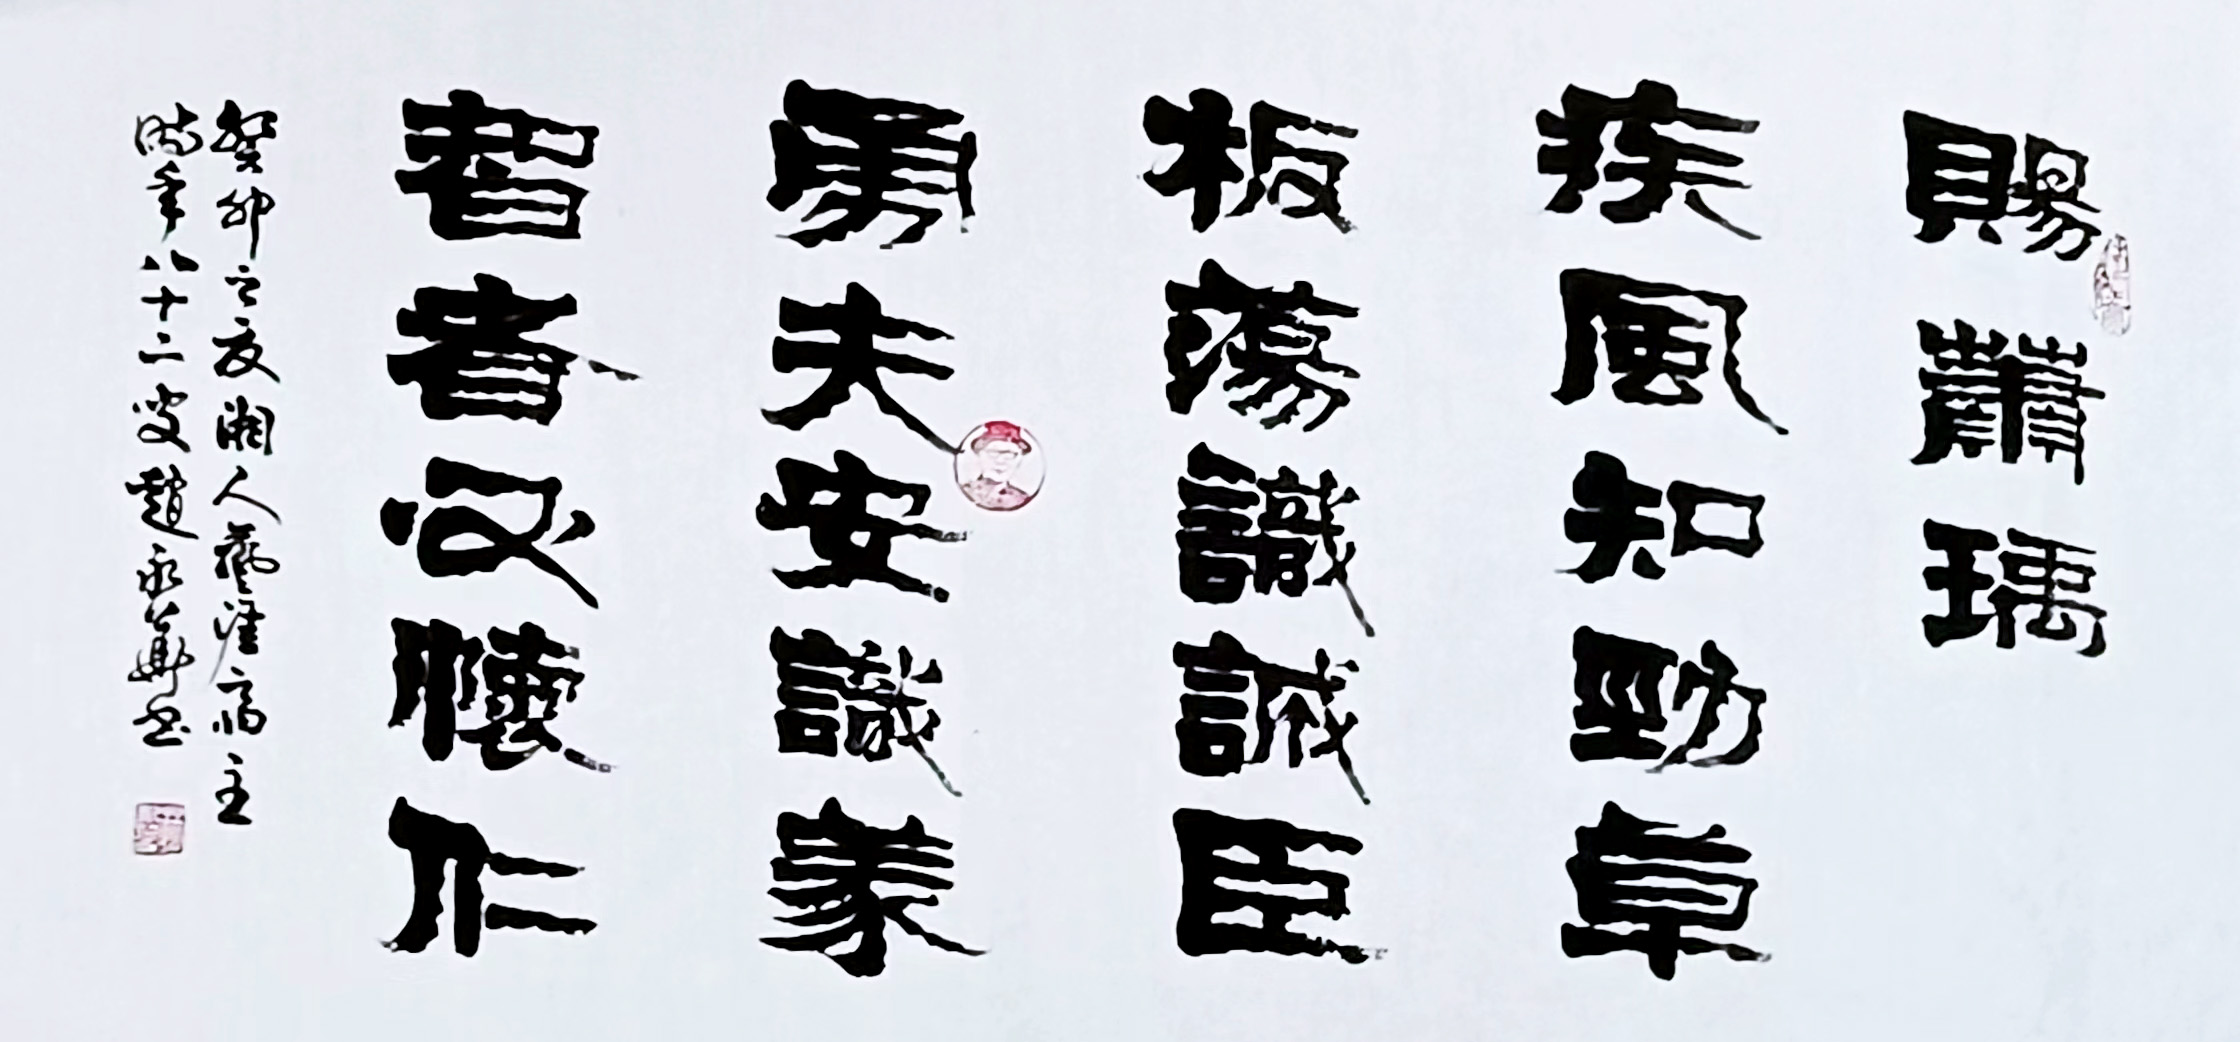 賜蕭瑀
疾風知勁草
板蕩識誠臣
勇夫安識義
智者必懷仁
癸卯之夏湘人藝涯齋主
時年八十二叟趙永華书